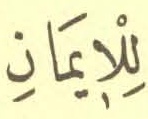 لِلْإِيمَانِ